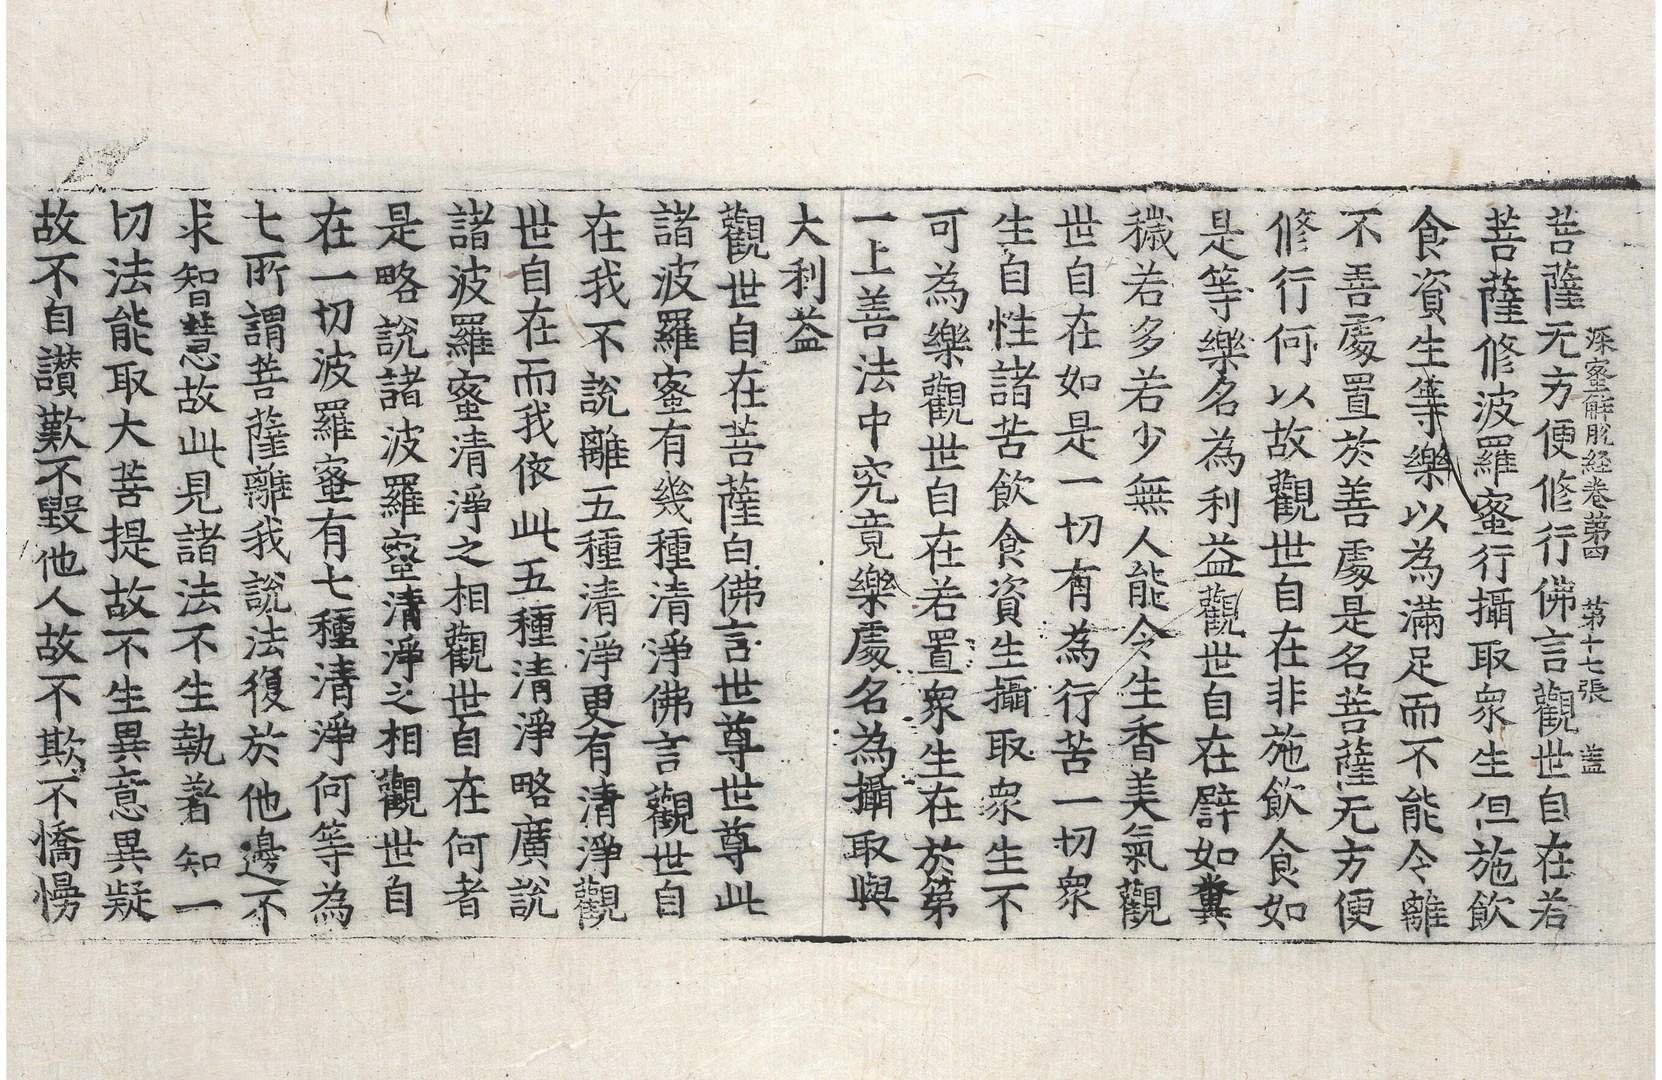 深蜜解脫経卷第四　第十七張　盖
菩薩无方便修行佛言觀世自在若
菩薩修波羅蜜行攝取衆生但施飲
食資生等樂以為滿足而不能令離
不善處置於善處是名菩薩无方便
修行何以故觀世自在非施飲食如
是等樂名為利益觀世自在譬如糞
穢若多若少無人能令生香美氣觀
世自在如是一切有為行苦一切衆
生自性諸苦飲食資生攝取衆生不
可為樂觀世自在若置衆生在於第
一上善法中究竟樂處名為攝取與
大利益
觀世自在菩薩白佛言世尊世尊此
諸波羅蜜有幾種清淨佛言觀世自
在我不說離五種清淨更有清淨觀
世自在而我依此五種清淨略廣說
諸波羅蜜清淨之相觀世自在何者
是略說諸波羅蜜清淨之相觀世自
在一切波羅蜜有七種清淨何等為
七所謂菩薩離我說法復於他邊不
求智慧故此見諸法不生執著知一
切法能取大菩提故不生異意異疑
故不自讃歎不毀他人故不欺不憍慢